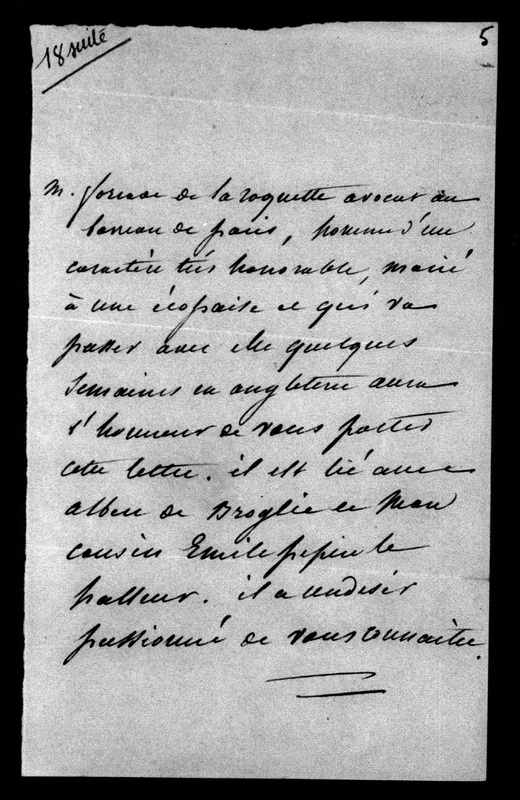 18 suite
5
M. de la roquette avocat au
barreau de paris, homme d'un
caractère très honorable, marié
à une écossaise et qui va
passer avec elle quelques
semaines en angleterre aura
l'honneur de vous porter
cette lettre. il est lié avec
albert de Broglie et Mon
cousin Emile pepin le
halleur. il a un desir
passionné de vous connaitre.